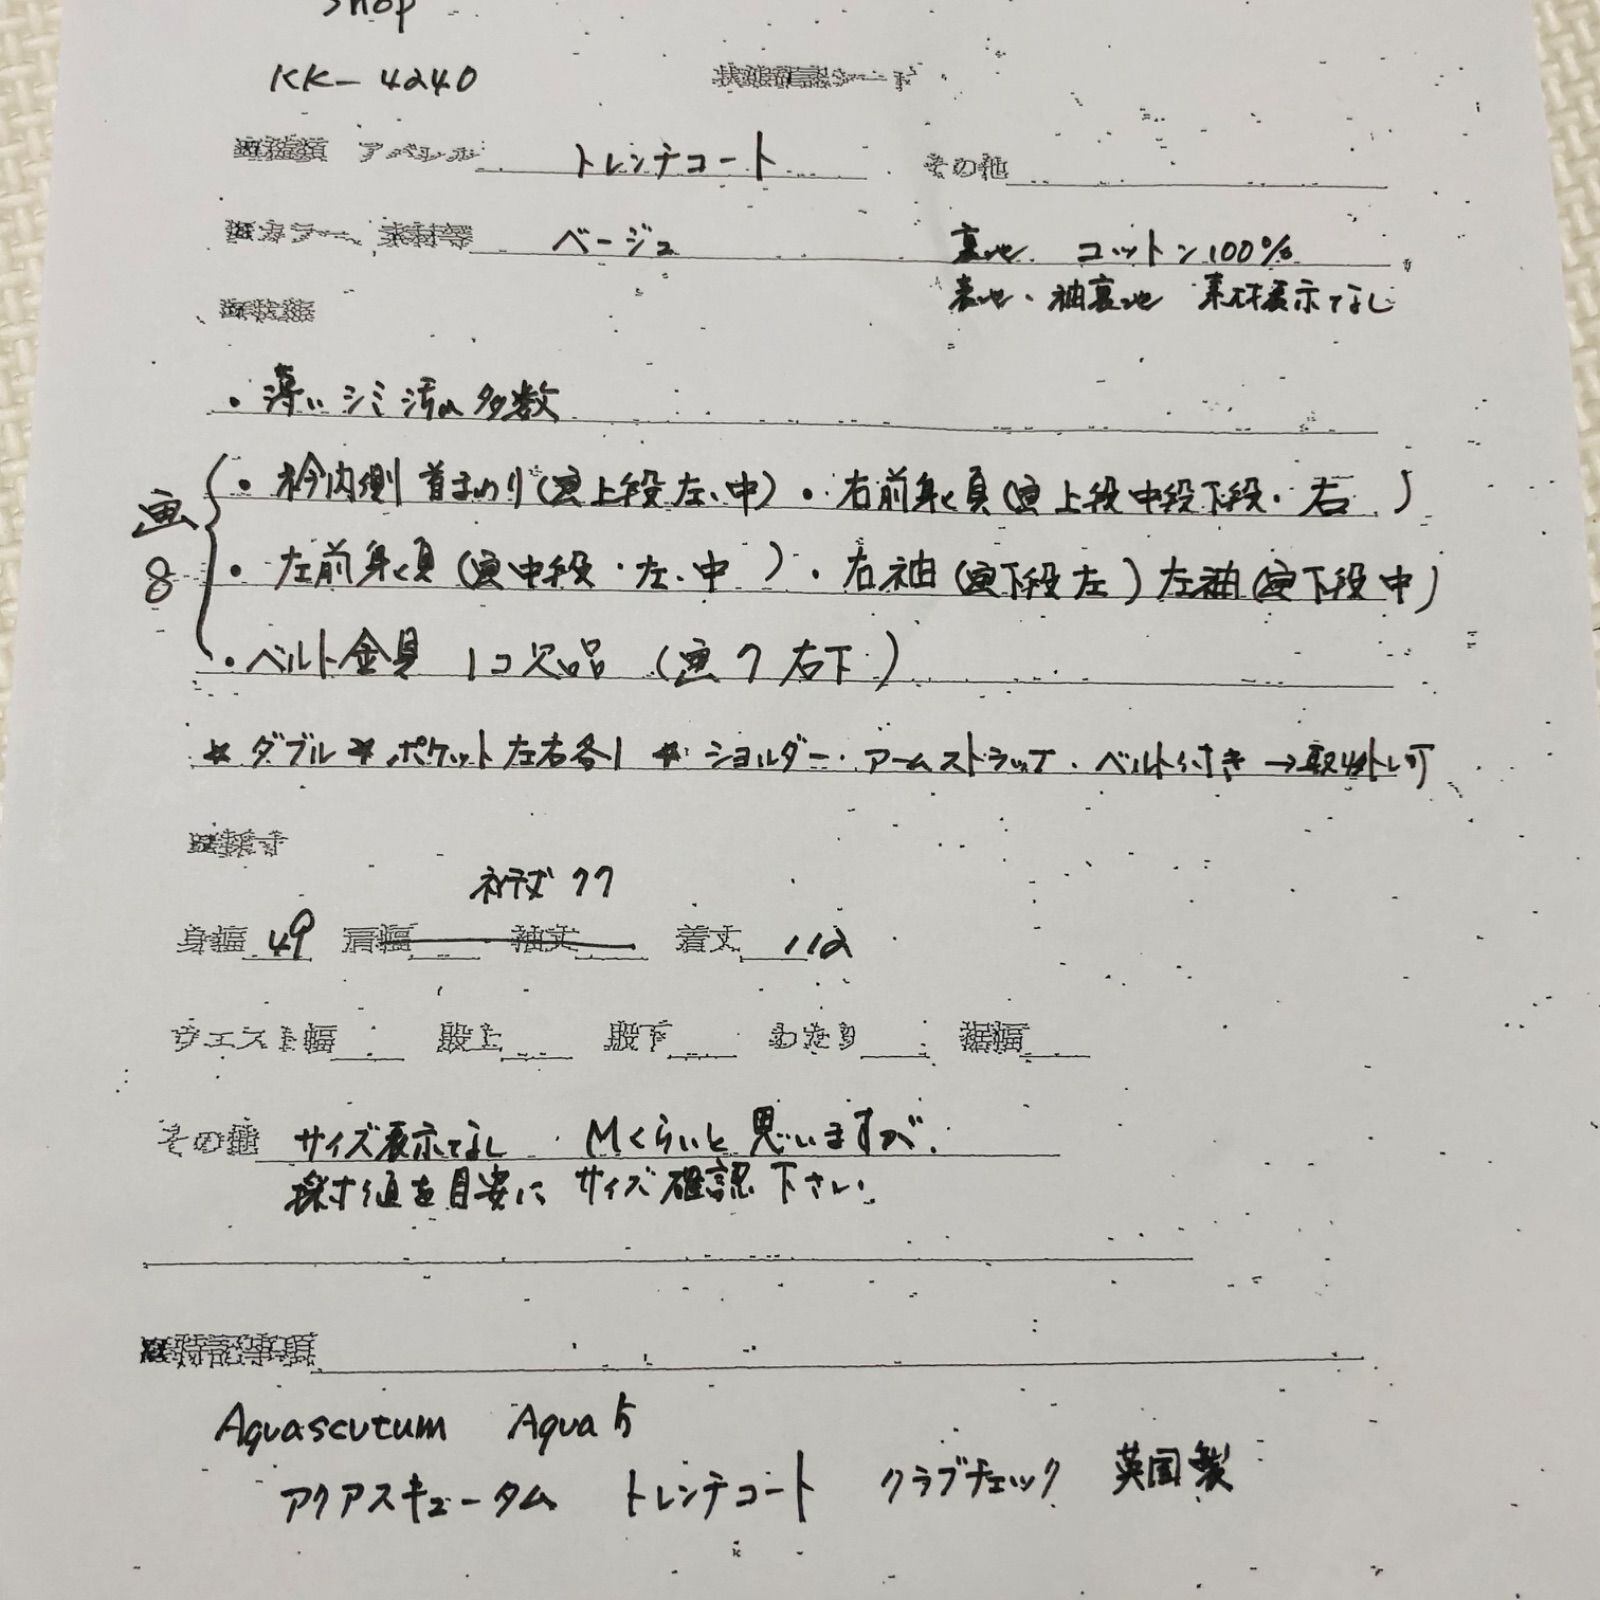 shop
KK-4240 状態確認シート
アパレル トレンチコート その他
カラー、素材等 ベージュ 裏地 コットン100%
表地・袖裏地 素材表示なし
・薄いシミ汚れ多数
画8
・衿内側 首まわり(画上段左、中)・右前身頃(画上段中段下段・右)
・左前身頃(画中段・左、中)・右袖(画下段左)左袖(画下段中)
・ベルト金具 1コ欠品 (画7右下)
☆ダブル☆ポケット左右各1 ☆ショルダー・アームストラップ・ベルト付き→取り外し可
採寸
ネックテズ 77
身幅 49 肩幅 袖丈 着丈 112
ウエスト幅 股上 股下 わたり 裾幅
その他 サイズ表示なし Mくらいと思いますが、
採寸値を目安にサイズ確認下さい
特記事項
Aquascutum Aqua5
アクアスキュータム トレンチコート クラブチェック 英国製